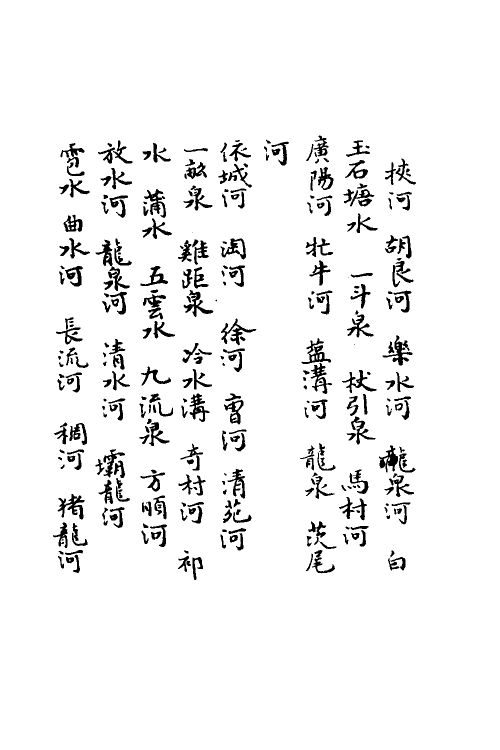 挾河 胡良河 樂水河 龍泉河 白
玉石塘水 一斗泉 杖引泉 馬村河
廣陽河 牤牛河 蓝溝河 龍泉 茨尾
河
依城河 淘河 徐河 曹河 清苑河
一畝泉 雞距泉 冷水溝 奇村河 祁
水 蒲水 五雲水 九流泉 方順河
放水河 龍泉河 清水河 壩龍河
雹水 曲水河 長流河 稠河 猪龍河